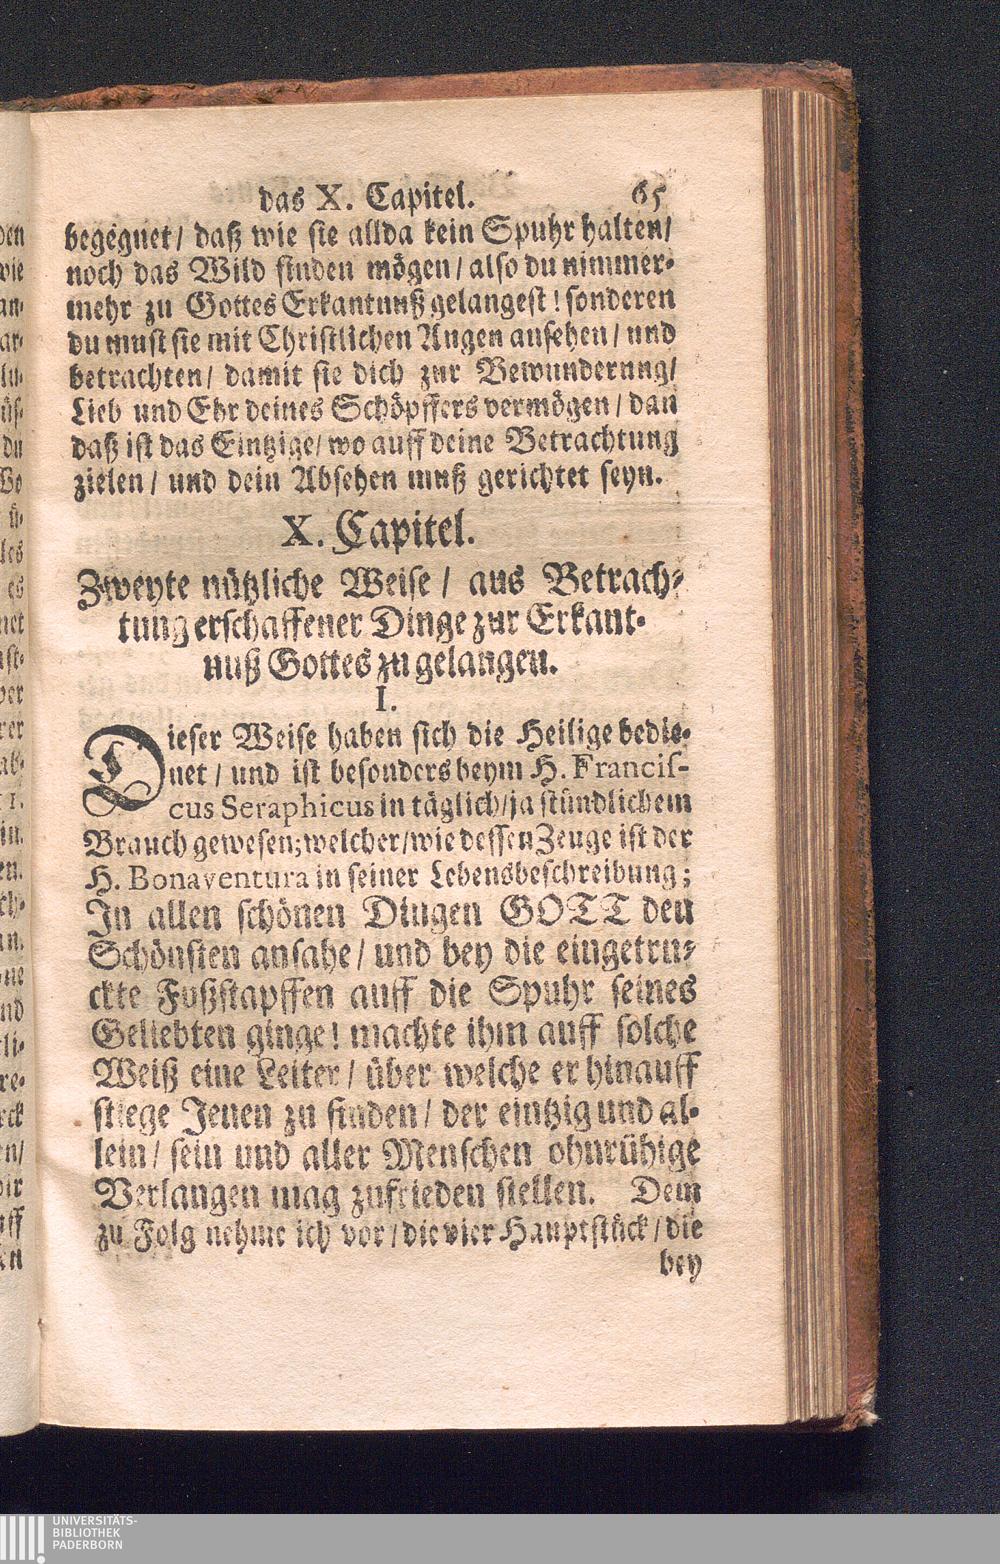 das X. Capitel. 65
begegnet / daß wie sie allda kein Spuhr halten /
noch das Wild finden mögen / also du nimmer-
mehr zu Gottes Erkantnuß gelangest! sonderen
du must sie mit Christlichen Augen ansehen / und
betrachten / damit sie dich zur Bewunderung /
Lieb und Ehr deines Schöpffers vermögen / dan
daß ist das Eintzige / wo auff deine Betrachtung
zielen / und dein Absehen muß gerichtet seyn.
X. Capitel.
Zweyte nützliche Weise / aus Betrach-
tung erschaffener Dinge zur Erkant-
nuß Gottes zu gelangen.
I.
Dieser Weise haben sich die Heilige bedie-
net / und ist besonders beym H. Francis-
cus Seraphicus in täglich / ja stündlichem
Brauch gewesen; welcher / wie dessen Zeuge ist der
H. Bonaventura in seiner Lebensbeschreibung;
In allen schönen Dingen GOTT den
Schönsten ansahe / und bey die eingetru-
ckte Fußstapffen auff die Spuhr seines
Geliebten ginge! machte ihm auff solche
Weiß eine Leiter / über welche er hinauff
stiege Jenen zu finden / der eintzig und al-
lein / sein und aller Menschen ohnrühige
Verlangen mag zufrieden stellen. Dem
zu Folg nehme ich vor / die vier Hauptstück / die
bey
UNIVERSITÄTS-
BIBLIOTHEK
PADERBORN